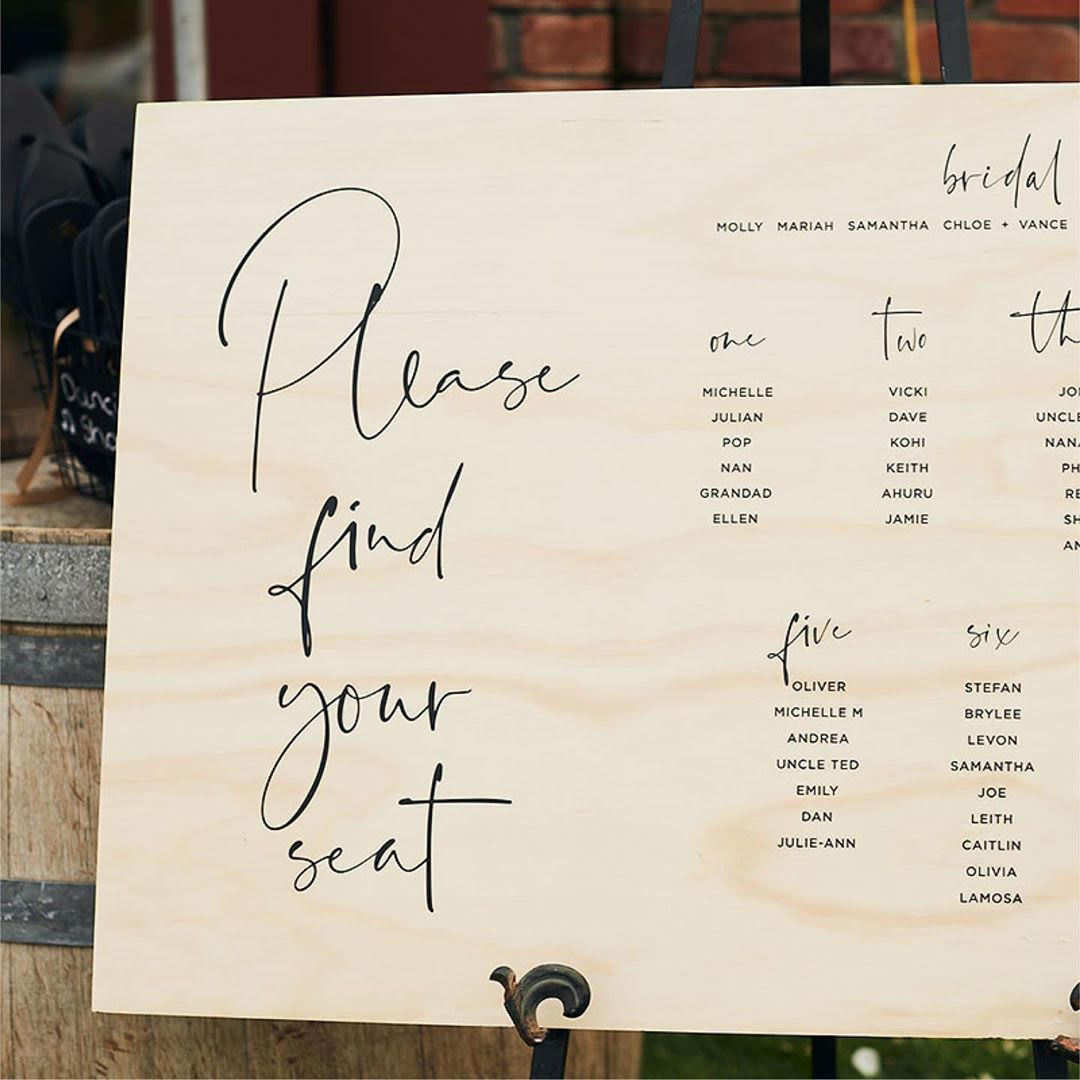 Please
find
your
seat
bridal
MOLLY MARIAH SAMANTHA CHLOE + VANCE
one
MICHELLE
JULIAN
POP
NAN
GRANDAD
ELLEN
two
VICKI
DAVE
KOHI
KEITH
AHURU
JAMIE
th
JO
UNCLE
NAN
PH
RE
SH
AN
five
OLIVER
MICHELLE M
ANDREA
UNCLE TED
EMILY
DAN
JULIE-ANN
six
STEFAN
BRYLEE
LEVON
SAMANTHA
JOE
LEITH
CAITLIN
OLIVIA
LAMOSA